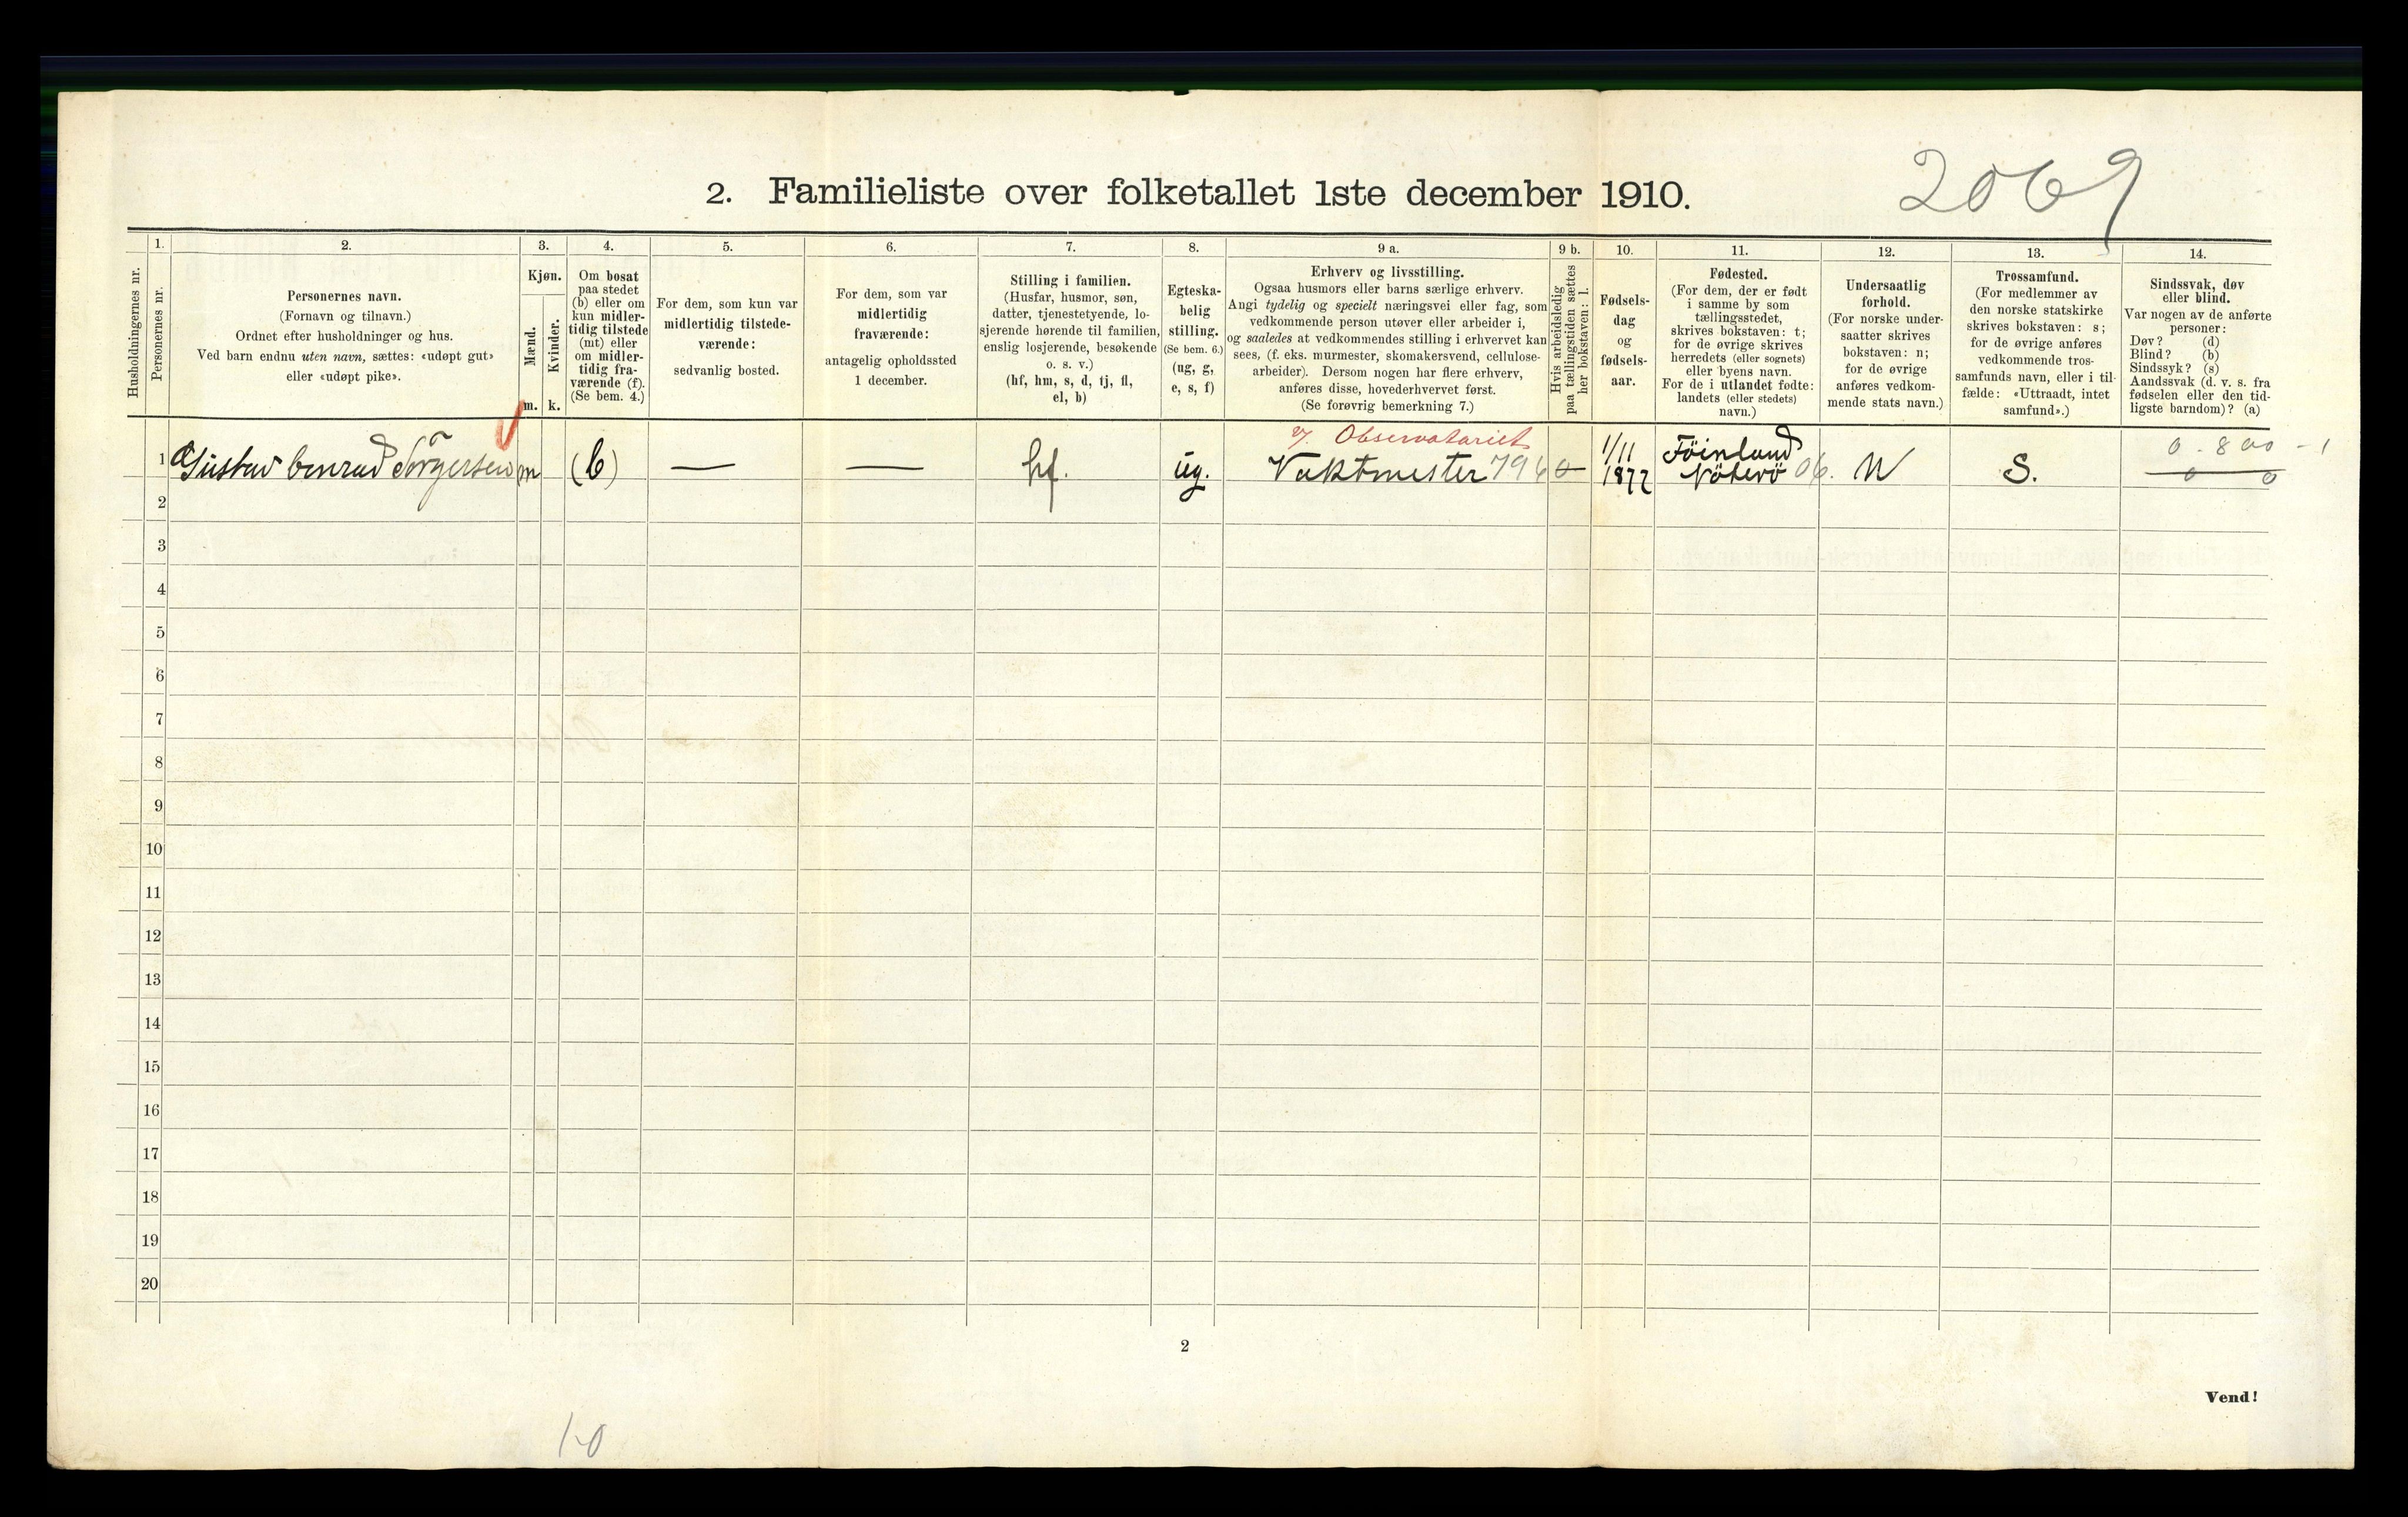 2069
2. Familieliste over folketallet 1ste december 1910.
Husholdningernes nr.
1.
Personernes nr.
2.
Personernes navn.
(Fornavn og tilnavn.)
Ordnet efter husholdninger og hus.
Ved barn endnu uten navn, sættes: «udøpt gut»
eller «udøpt pike».
3.
Kjøn.
Mænd.
Kvinder.
m. k.
4.
Om bosat
paa stedet
(b) eller om
kun midler-
tidig tilstede
(mt) eller
om midler-
tidig fra-
værende (f).
(Se bem. 4.)
5.
For dem, som kun var
midlertidig tilstede-
værende:
sedvanlig bosted.
6.
For dem, som var
midlertidig
fraværende:
antagelig opholdssted
1 december.
7.
Stilling i familien.
(Husfar, husmor, søn,
datter, tjenestetyende, lo-
sjerende hørende til familien,
enslig losjerende, besøkende
o. s. v.)
(hf, hm, s, d, tj, fl,
el, b)
8.
Egteska-
belig
stilling.
(Se bem. 6.)
(ug, g,
e, s, f)
9 a.
Erhverv og livsstilling.
Ogsaa husmors eller barns særlige erhverv.
Angi tydelig og specielt næringsvei eller fag, som
vedkommende person utøver eller arbeider i,
og saaledes at vedkommendes stilling i erhvervet kan
sees, (f. eks. murmester, skomakersvend, cellulose-
arbeider). Dersom nogen har flere erhverv,
anføres disse, hovederhvervet først.
(Se forøvrig bemerkning 7.)
9 b.
Hvis arbeidsledig
paa tællingstiden sættes
her bokstaven: l.
10.
Fødsels-
dag
og
fødsels-
aar.
11.
Fødested.
(For dem, der er født
i samme by som
tællingsstedet,
skrives bokstaven: t;
for de øvrige skrives
herredets (eller sognets)
eller byens navn.
For de i utlandet fødte:
landets (eller stedets)
navn.)
12.
Undersaatlig
forhold.
(For norske under-
saatter skrives
bokstaven: n;
for de øvrige
anføres vedkom-
mende stats navn.)
13.
Trossamfund.
(For medlemmer av
den norske statskirke
skrives bokstaven: s;
for de øvrige anføres
vedkommende tros-
samfunds navn, eller i til-
fælde: «Uttraadt, intet
samfund».)
14.
Sindssvak, døv
eller blind.
Var nogen av de anførte
personer:
Døv? (d)
Blind? (b)
Sindssyk? (s)
Aandssvak (d. v. s. fra
fødselen eller den tid-
ligste barndom)? (a)
v. Observatoriet
1 Gustav Conrad Sörgersen m (b) — — hf. ug. Vaktmester 796 0 1/11 1872 Föinland Nöterö 06. N S. 0-800-1
0 0
2
3
4
5
6
7
8
9
10
11
12
13
14
15
16
17
18
19
20
2
Vend!
1-0